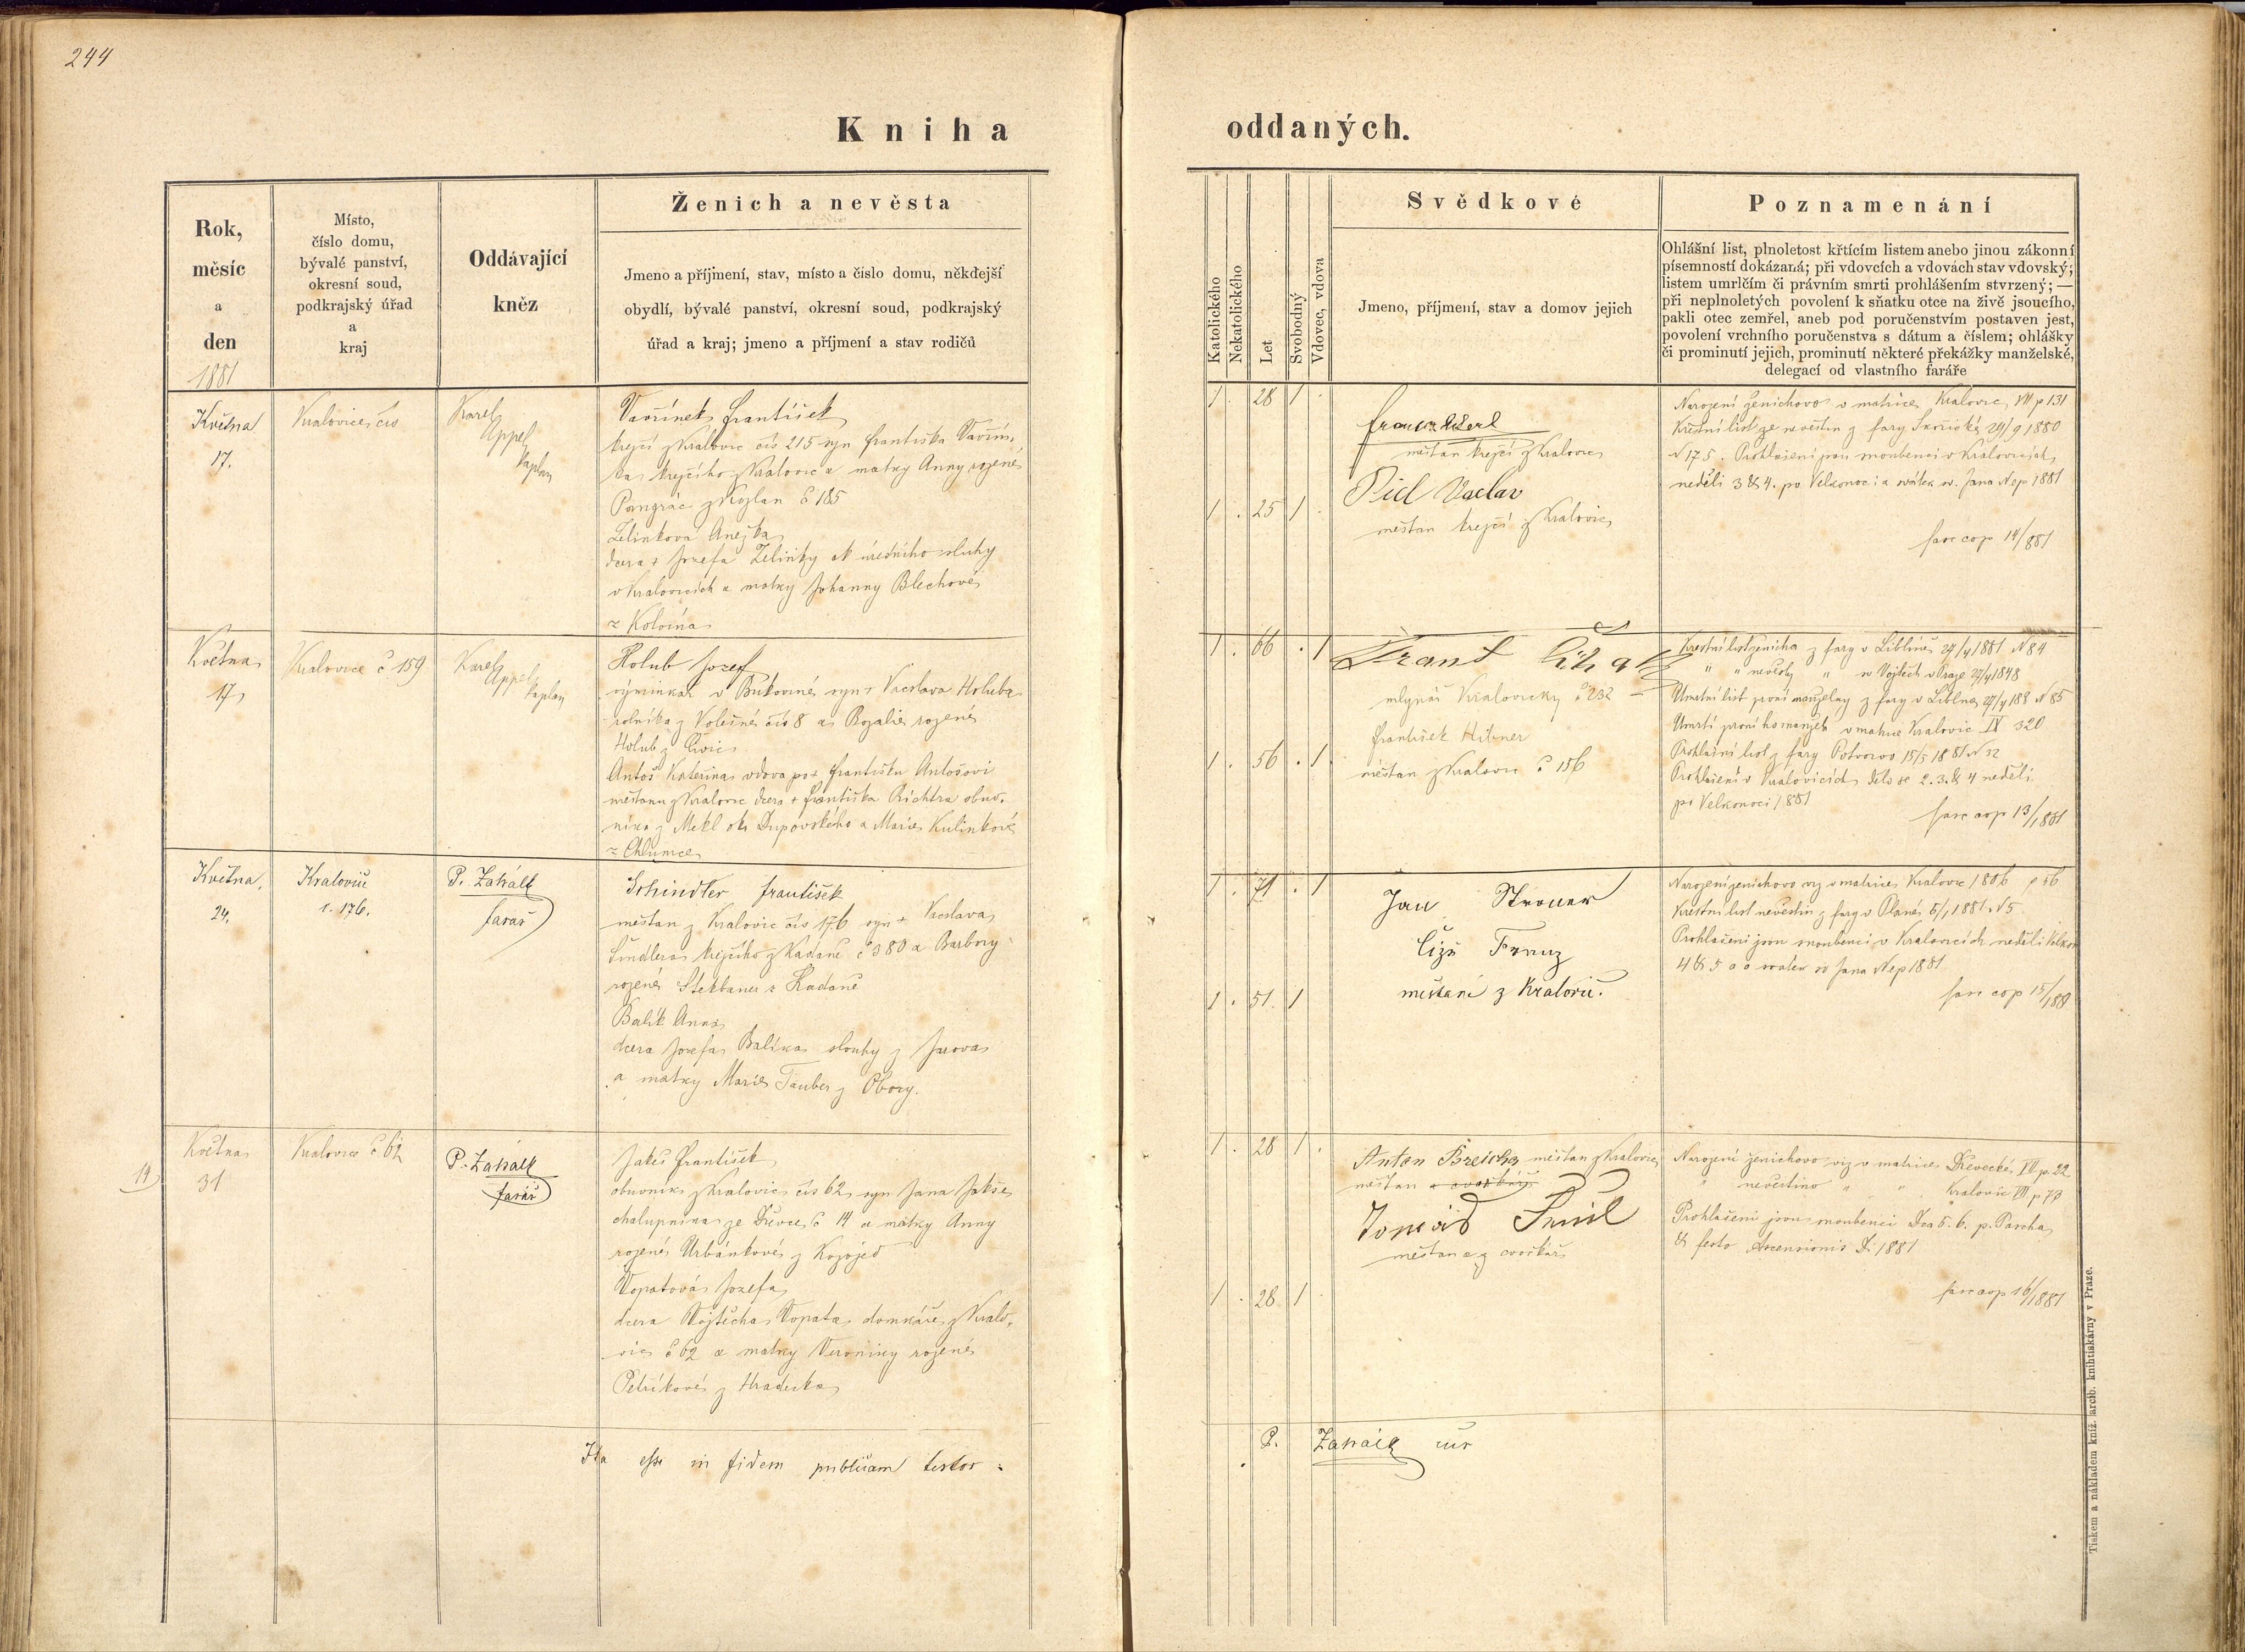 244
Kniha
oddaných.
Rok,
měsíc
a
den
1881
Místo,
číslo domu,
bývalé panství,
okresní soud,
podkrajský úřad
a
kraj
Oddávající
kněz
Ženich a nevěsta
Jmeno a příjmení, stav, místo a číslo domu, někdejší
obydlí, bývalé panství, okresní soud, podkrajský
úřad a kraj; jmeno a příjmení a stav rodičů
Katolického
Nekatolického
Let
Svobodný
Vdovec, vdova
Svědkové
Jmeno, příjmení, stav a domov jejich
Poznamenání
Ohlášní list, plnoletost křtícím listem anebo jinou zákonní
písemností dokázaná; při vdovcích a vdovách stav vdovský;
listem umrlčím či právním smrti prohlášením stvrzený; —
při neplnoletých povolení k sňatku otce na živě jsoucího,
pakli otec zemřel, aneb pod poručenstvím postaven jest,
povolení vrchního poručenstva s dátum a číslem; ohlášky
či prominutí jejich, prominutí některé překážky manželské,
delegací od vlastního faráře
Května
17.
Kralovice čís
Karel
Appel
kaplan
Vavřínek František
krejčí z Kralovic čís 215 syn Františka Vavřín-
ka krejčího z Kralovic a matky Anny rozené
Pangrác z Kozlan č 185
Zelinkova Anežka
dcera + Jozefa Zelinky ok úředního sluhy
v Kralovicích a matky Johanny Blechové
z Kolvína
1 . 28 1 .
1 . 25 1 .
měštan krejčí z Kralovic
Pícl Vaclav
měštan krejčí z Kralovic
Narození ženichovo v matrice Kralovic VII p 131
Křestní list ze nevěstin z fary 29/9 1880
N 175. Prohlášeni jsou snoubenci v Kralovicích
neděli 3 & 4. po Velkonoci a svátek sv. Jana Nep 1881
fasc cop 14/881
Května
17
Kralovice č 159
Karel
Appel
kaplan
Holub Jozef
výminkář v Bukovině syn + Vaclava Holuba
rolníka z Volešné čís 8 a Rozalie rozené
Holub z
Antoš Kateřina vdova po + Františku Antošovi
měštanu z Kralovic dcera + Františka Richtra obuv-
níka z Mekl okr Dupovského a Marie Kulinkové
z Chlumce
1 . 66 . 1
1 . 56 . 1
Frant Čižek
mlynář Kralovický č 232
František Hibner
měštan z Kralovic č 156
Křestní list ženicha z fary v Liblíně 27/4 1881 N 84
" " nevěsty " sv Vojtěch v Praze 27/4 1848
Umrtní list první manželky z fary v Liblíně 27/4 188 N 85
Umrtí prvního manžela v matrice Kralovic IV 320
Prohlašní list z fary Potvorov 15/5 1881 N 32
Prohlášení v Kralovicích dělo se 2. 3. & 4 neděli
po Velkonoci 1881
fasc cop 13/1881
Května
24.
Kralovic
č. 176.
P. Zahálk
farář
Schindler František
měštan z Kralovic čís 176 syn + Vaclava
Šindlera krejčího z Kadaně č 380 a Barbory
rozené z Kadaně
Balík Anna
dcera Jozefa Balíka slouhy z Jarova
a matky Marie Tauber z Obory.
1 . 71 . 1
1 . 51 1
Jan Stroner
Čížo Franz
měštani z Kralovic.
Narození ženichovo viz v matrice Kralovic 1806 p 56
Křestní list nevěstin z fary v Plané 5/1 1881 N 5
Prohlášeni jsou snoubenci v Kralovicích neděli Velkon
4 & 5 a svátek sv Jana Nep 1881
fasc cop 15/188
Května
31
14
Kralovice č 62
P. Zahálk
farář
Jakeš František
obuvník z Kralovic čís 62 syn Jana Jakše
chalupníka ze Dřevce č 14 a matky Anny
rozené Urbánkové z Kozojed
Vopatová Jozefa
dcera Vojtěcha Vopata domkáře z Kralo-
vic č 62 a matky Veroniky rozené
Petříkové z Hradecka
1 . 28 1 .
1 . 28 1
Anton Březicha měštan z Kralovic
měštan a cvočkář
Smíl
měštan a cvočkář
Narození ženichovo viz v matrice Dřevecké VI p 22
" nevěstino " " Kralovic VII p 73
Prohlášeni jsou snoubenci Dca 5. 6. p. Pascha
& festo Ascensionis D. 1881
fasc cop 16/1881
Ita esse in fidem publicam testor :
P. Zahálk
Tiskem a nákladem kníž. arcib. knihtiskárny v Praze.